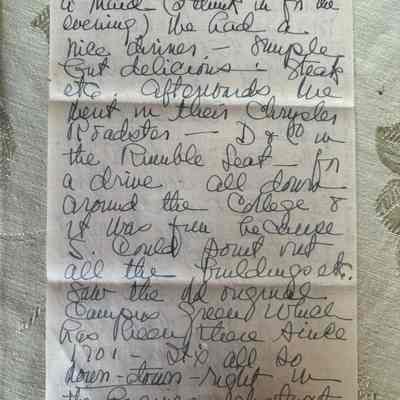 a maid (I think in for the
evening) We had a
nice dinner - simple
but delicious: Steak
etc. Afterwards, we
went in their Chrysler
Roadster — D & O in
the Rumble Seat - for
a drive all down
around the College &
it was fun because
S. Could point out
all the buildings etc.
Saw the old original
Campus Green which
has been there since
1701 - It's all so
down-town-right in
the